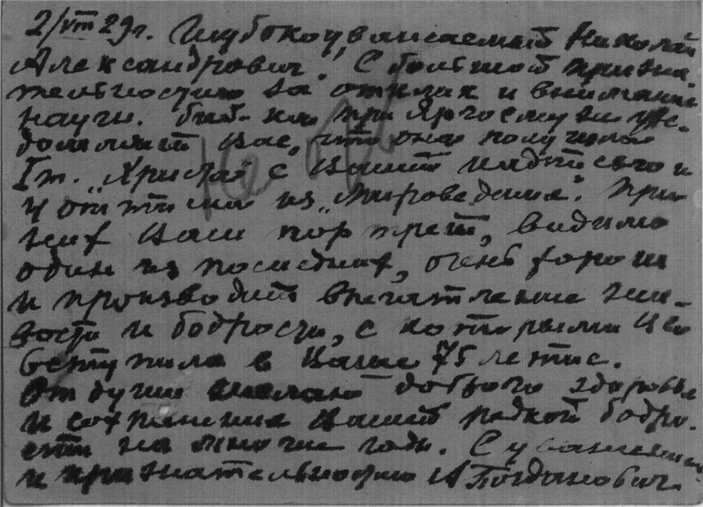 2/VIII 29 г. Глубокоуважаемый Николай
Александрович! С большой призна-
тельностью за отклик и внимание
научн. библ-ка при ЯрГосмузее уве-
домляет Вас, что она получила
I т. „Христа" с Вашей надписью и
4 оттиска из „Мироведения". При
них Ваш портрет, видимо
один из последних, очень хорош
и производит впечатление жи-
вости и бодрости, с которыми Вы
вступили в Ваше 75 летие.
От души желаю доброго здоровья
и сохранения Вашей редкой бодро-
сти на многие годы. С уважением
и признательностью А Богданович